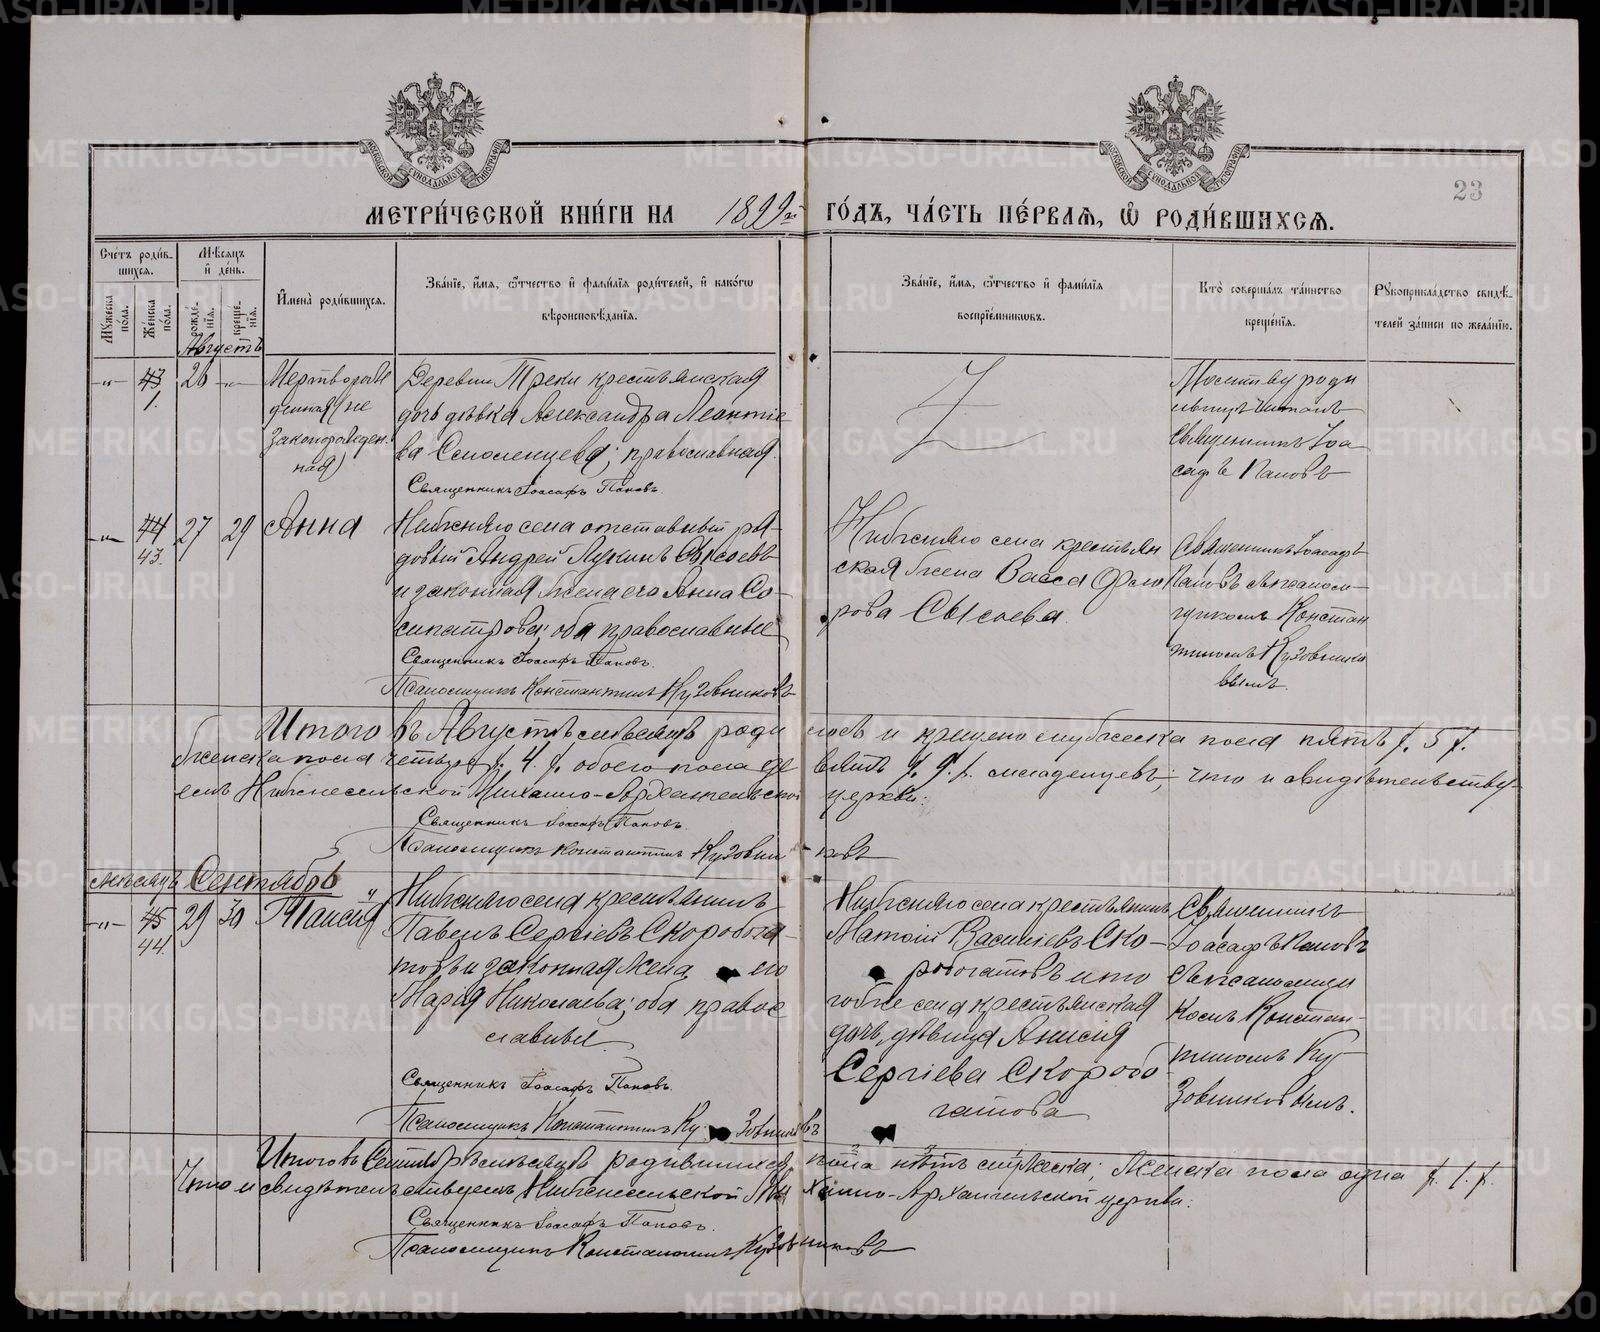 23
МЕТРИ́ЧЕСКОЙ КНИ́ГИ НА 1899й ГО́ДЪ, ЧА́СТЬ ПЕ́РВАѦ, Ѿ РОДИ́ВШИХСѦ.
Сче́тъ роди́вшихсѧ.
Мꙋ́жеска пола.
Же́нска пола.
Мѣ́сѧцъ и́ де́нь.
рожде́нїѧ.
креще́нїѧ.
И́мена̀ роди́вшихсѧ.
Зва́нїе, и́мѧ, ѻ҆́тчество и҆ фами́лїѧ роди́телей, и҆ како́гѡ
вѣроисповѣ́данїѧ.
Зва́нїе, и́мѧ, ѻ҆́тчество и҆ фами́лїѧ
воспрїе́мникѡвъ.
Кто̀ соверша́лъ та́инство
креще́нїѧ.
Рꙋкоприкла́дство свидѣ́-
телей за́писи по жела́нїю.
Августъ
-"- 43 26 -"-
1.
Мертворож
денная (не
законорожден
ная)
Деревни Треки крестьянская
дочь дѣвка Александра Леонтіе
ва Смоленцева; православная.
Священникъ Іоасафъ Поповъ.
Молитву роди
тельницѣ читалъ
Священникъ Іоа
сафъ Поповъ
-"- 44 27 29 Анна
43.
Нижняго села отставный ря-
довый Андрей Лукинъ Сысоевъ
и законная жена его Анна Со-
сипатрова; оба православные
Священникъ Іоасафъ Поповъ.
Псаломщикъ Константинъ Кузовниковъ
Нижняго села крестьян
ская жена Васса Фело
рова Сысоева.
Священникъ Іоасафъ
Поповъ съ псалом-
щикомъ Констан
тиномъ Кузовнико
вымъ.
Итого въ Августѣ мѣсяцѣ роди лось и крещено мужеска пола пять /. 5 /.
женска пола четыре /. 4. /. обоего пола де вять /. 9. /. младенцевъ; что и свидѣтельству-
емъ Нижнесельской Михаило-Архангельской церкви:
Священникъ Іоасафъ Поповъ.
Псаломщикъ Константинъ Кузовни ковъ
мѣсяцъ Сентябрь
-"- 45 29 30 Таисія
44.
Нижняго села крестьянинъ
Павелъ Сергіевъ Скоробога-
товъ и законная жена его
Марія Николаева; оба правос
лавные.
Священникъ Іоасафъ Поповъ.
Псаломщикъ Константинъ Ку зовниковъ
Нижняго села крестьянинъ
Матѳій Василіевъ Ско-
робогатовъ и то
гоже села крестьянская
дочь, дѣвица Анисія
Сергіева Скоробо
гатова
Священникъ
Іоасафъ Поповъ
съ псаломщи
комъ Констан-
тиномъ Ку-
зовниковымъ.
Итого въ Сентябрѣ мѣсяцѣ родившихся пола нѣтъ мужеска; женска пола одна /. 1. /.
Что и свидѣтельствуемъ Нижнесельской Ми хаило-Архангельской церкви:
Священникъ Іоасафъ Поповъ.
Псаломщикъ Константинъ Кузовниковъ
METRIKI.GASO-URAL.RU